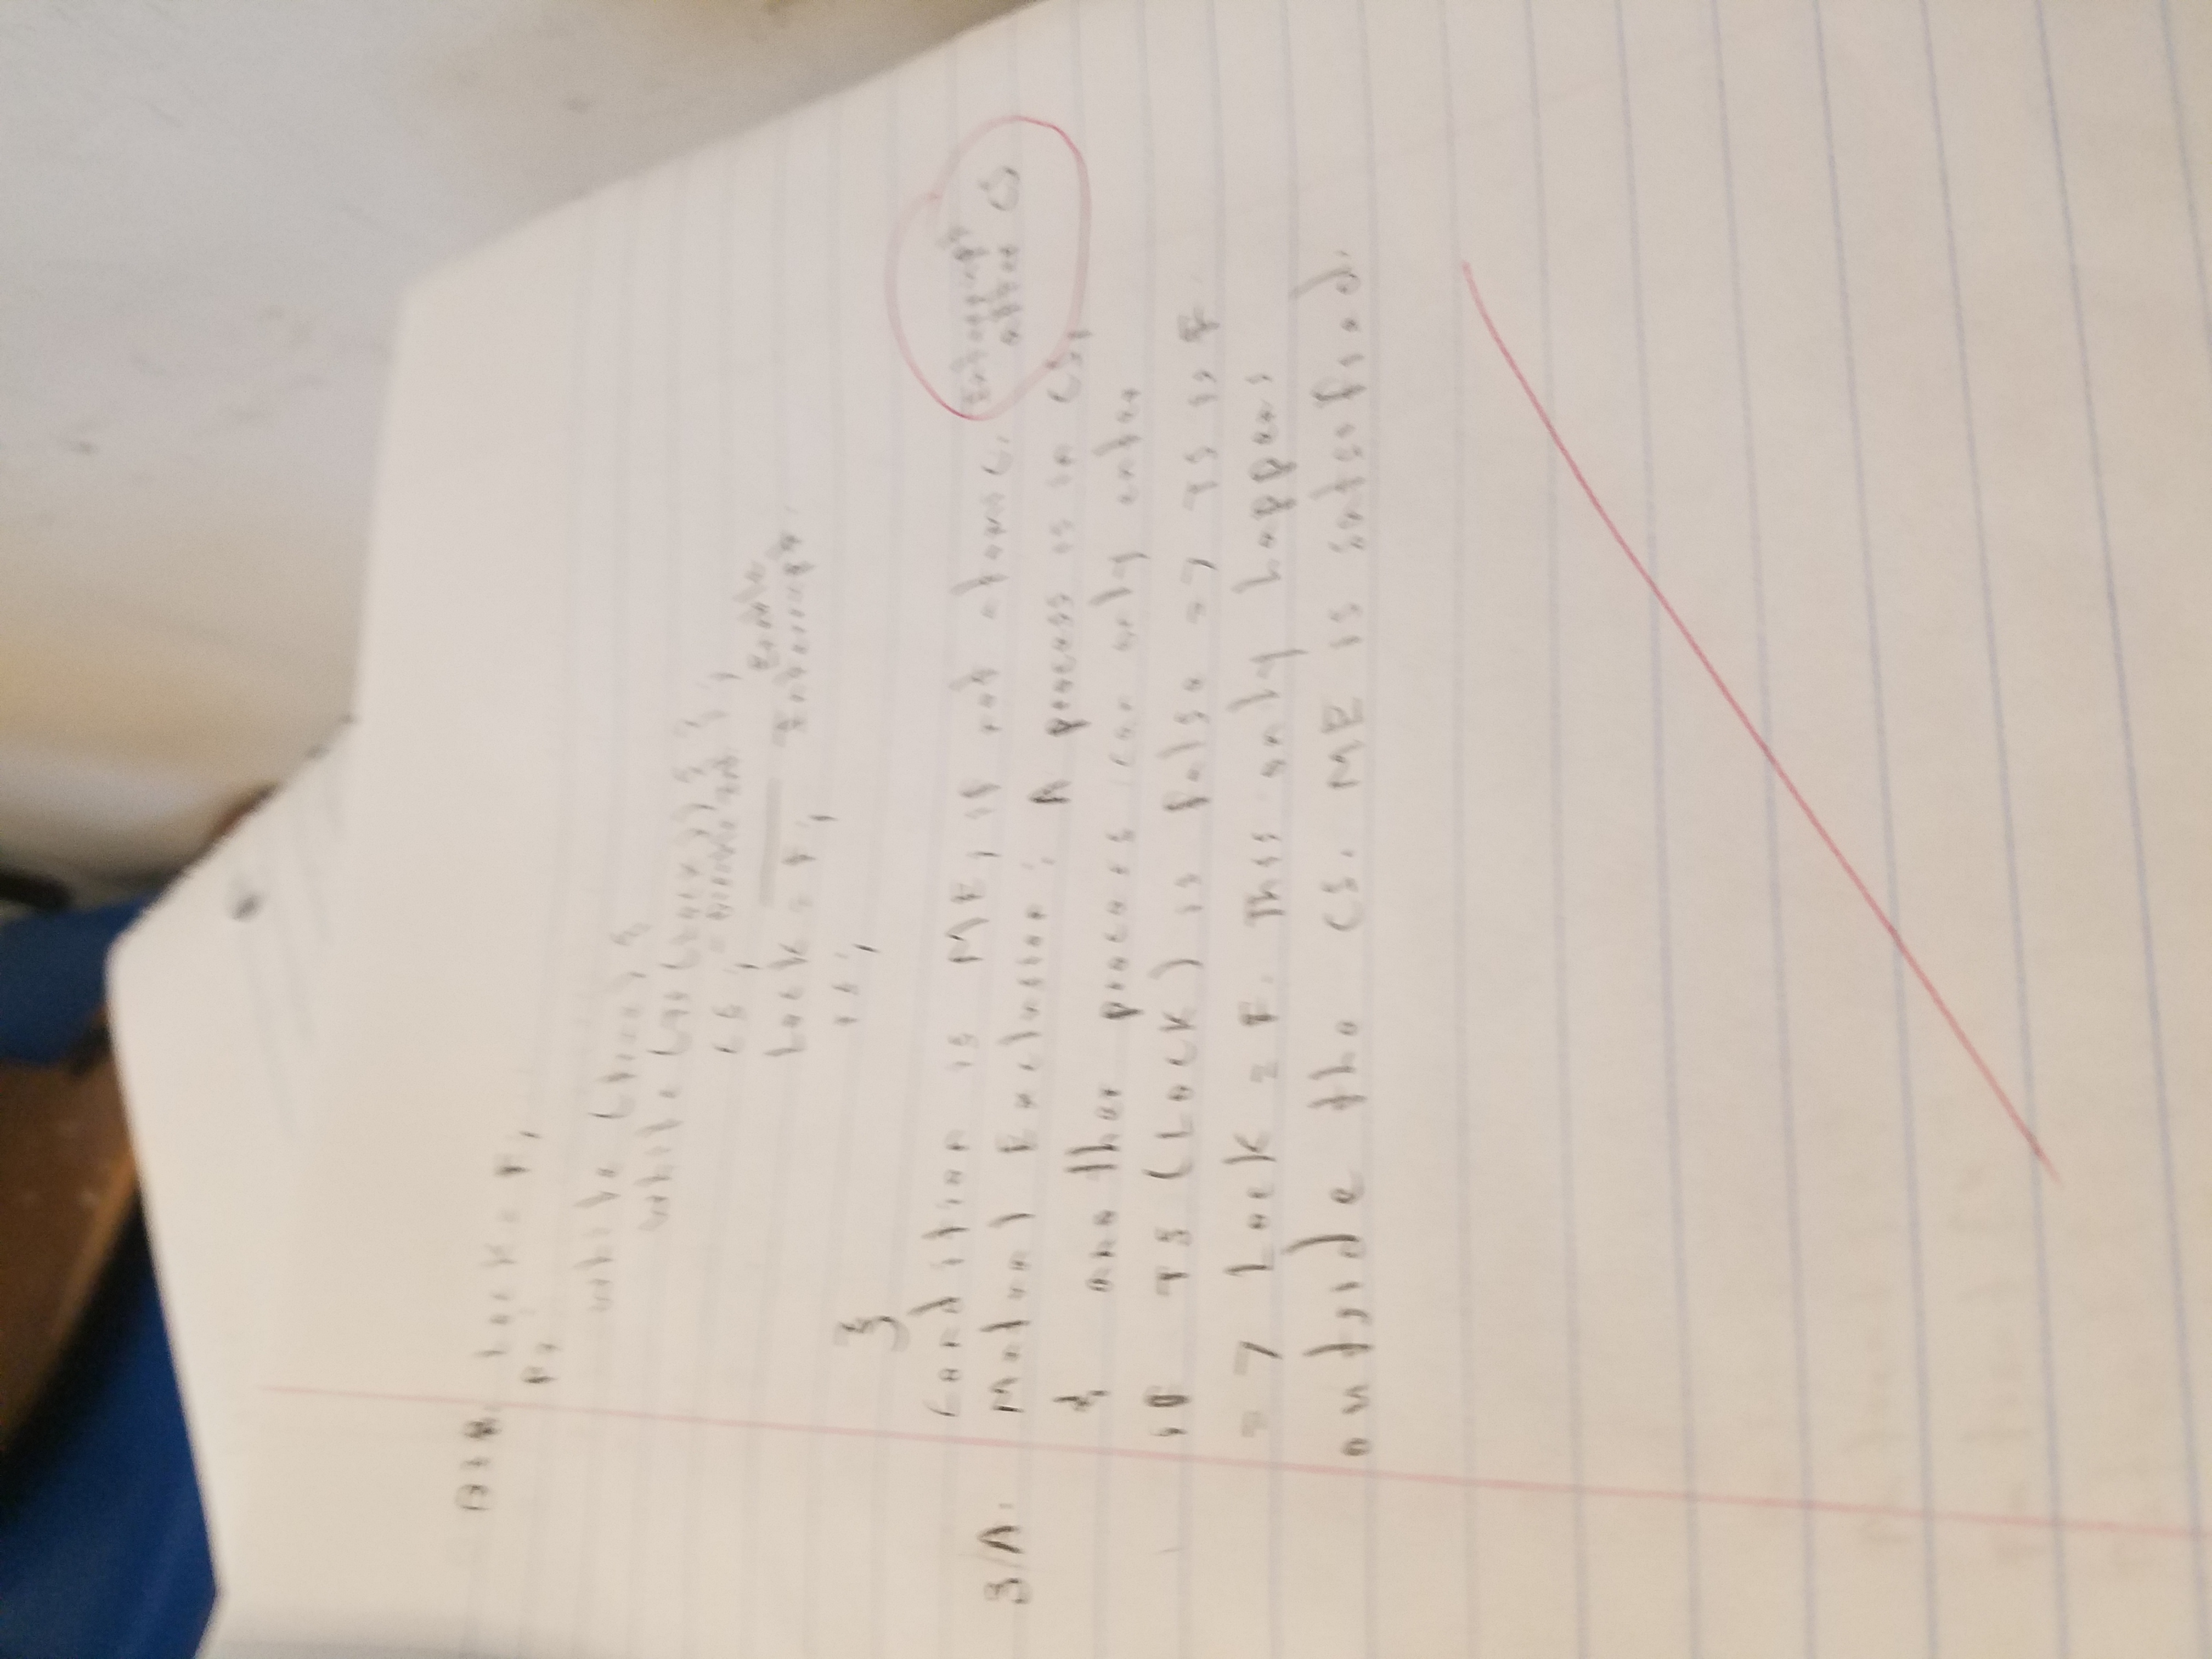 Lock = F;
while (true) {
while (TS (Lock)) { } ;
CS ; - Disable Int.
Lock = F; Enable Interrupt.
rs ;
}
Condition is ME, if not atomic. Interrupt after CS
3/A. Mutual Exclusion: A process is in CS,
& another process can only enter
if TS (Lock) is false => TS is F
=> Lock = F. This only happens
outside the CS. ME is satsofied.